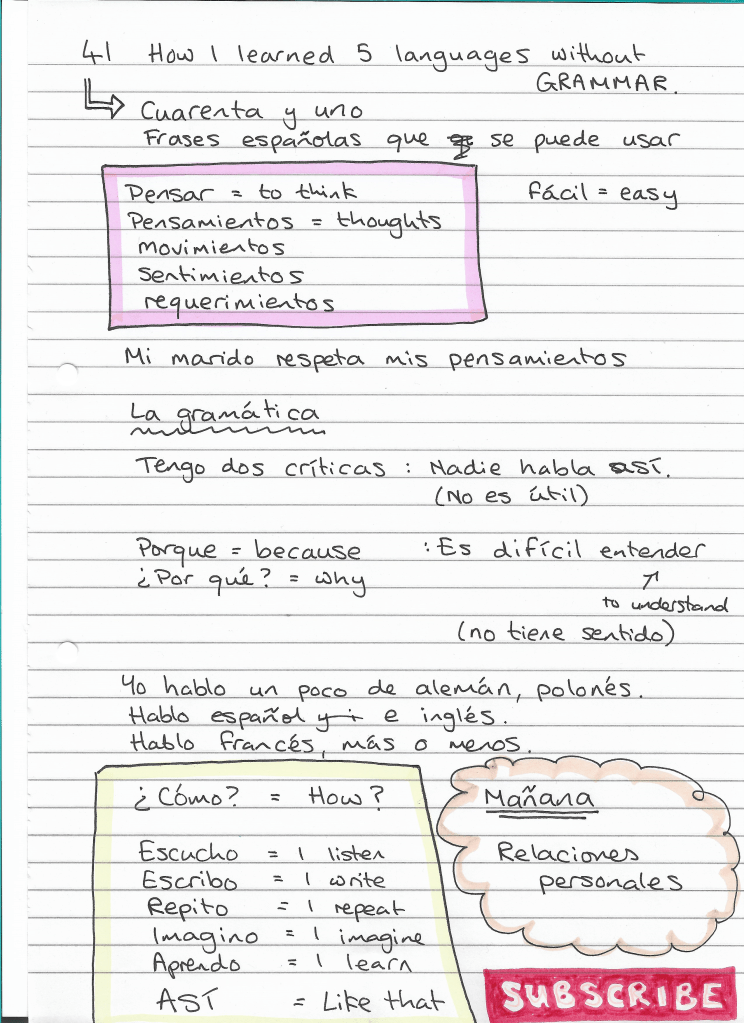 41 How I learned 5 languages without
GRAMMAR.
Cuarenta y uno
Frases españolas que se puede usar
Pensar = to think
Pensamientos = thoughts
movimientos
sentimientos
requerimientos
fácil = easy
Mi marido respeta mis pensamientos
La gramática
Tengo dos críticas : Nadie habla así.
(No es útil)
Porque = because : Es difícil entender
¿Por qué? = why
to understand
(no tiene sentido)
Yo hablo un poco de alemán, polonés.
Hablo español y i e inglés.
Hablo francés, más o menos.
¿Cómo? = How?
Escucho = I listen
Escribo = I write
Repito = I repeat
Imagino = I imagine
Aprendo = I learn
ASÍ = Like that
Mañana
Relaciones
personales
SUBSCRIBE